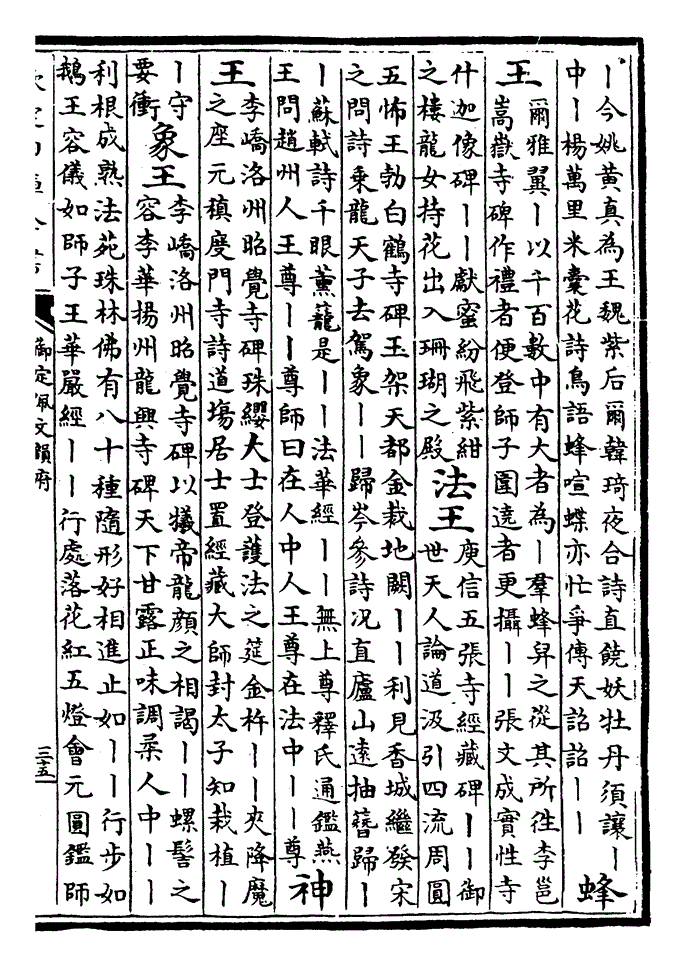 丨今姚黃真為王魏紫后爾韓琦夜合詩直饒妖牡丹須讓丨
中丨楊萬里米囊花詩鳥語蜂喧蝶亦忙爭傳天詔詔丨丨
蜂
王
爾雅翼丨以千百數中有大者為丨羣蜂舁之從其所徃李邕
嵩嶽寺碑作禮者便登師子圍遶者更攝丨丨張文成實性寺
什迦像碑丨丨獻蜜紛飛紫紺
之樓龍女持花出入珊瑚之殿
法王
庾信五張寺經藏碑丨丨御
世天人論道汲引四流周圓
五怖王勃白鶴寺碑玉架天都金裁地闕丨丨利見香城繼發宋
之問詩乗龍天子去駕象丨丨歸岑參詩况直廬山遠抽簮歸丨
丨蘇軾詩千眼薰蘢是丨丨法華經丨丨無上尊釋氏通鑑燕
王問趙州人王尊丨丨尊師曰在人中人王尊在法中丨丨尊
神
王
李嶠洛州昭覺寺碑珠纓大士登護法之筵金杵丨丨夾降魔
之座元稹度門寺詩道塲居士置經藏大師封太子知栽植丨
丨守
要衝
象王
李嶠洛州昭覺寺碑以犧帝龍顔之相謁丨丨螺髻之
容李華揚州龍興寺碑天下甘露正味調柔人中丨丨
利根成熟法苑珠林佛有八十種隨形好相進止如丨丨行步如
鵝王容儀如師子王華嚴經丨丨行處落花紅五燈會元圓鑑師
欽定四庫全書
御定佩文韻府
三十五